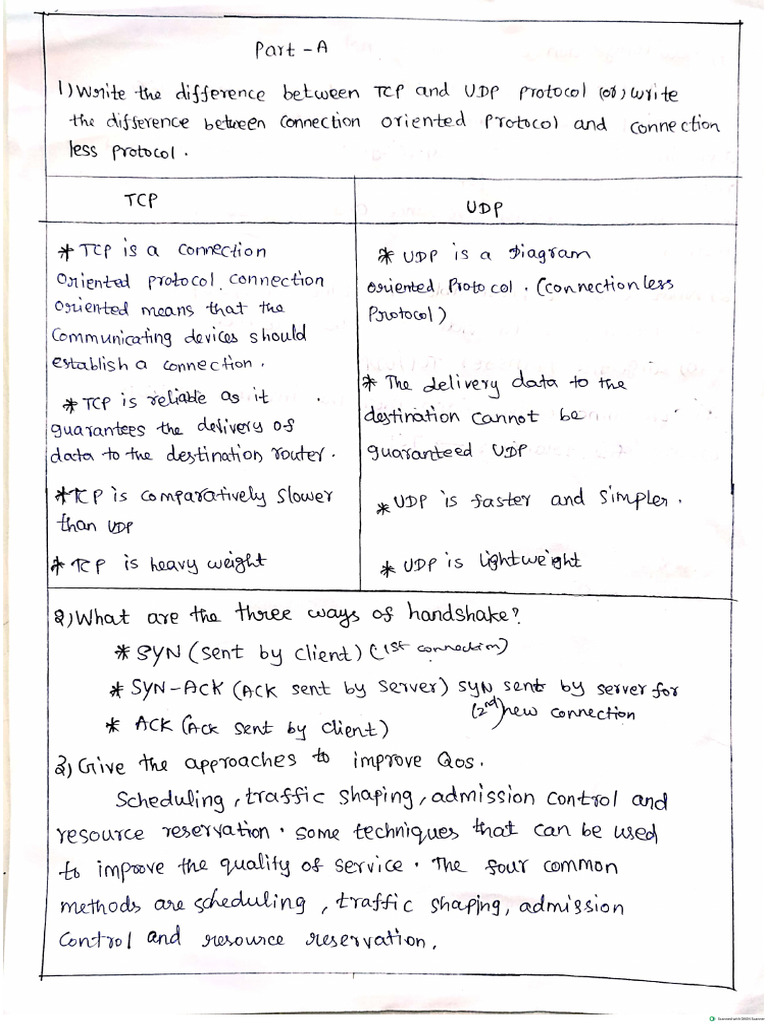 Part - A
1) Write the difference between TCP and UDP protocol (or) write
the difference between connection oriented protocol and connection
less protocol.
TCP
UDP
* TCP is a connection
oriented protocol. connection
oriented means that the
communicating devices should
establish a connection.
* TCP is reliable as it
guarantees the delivery of
data to the destination router.
* TCP is comparatively slower
than UDP
* TCP is heavy weight
* UDP is a Diagram
oriented Protocol. (connectionless
Protocol)
* The delivery data to the
destination cannot be
guaranteed UDP
* UDP is faster and simpler.
* UDP is lightweight
2) What are the three ways of handshake?
* SYN (sent by client) (1st connection)
* SYN-ACK (ACK sent by server) SYN sent by server for
(2nd) new connection
* ACK (ACK sent by client)
3) Give the approaches to improve Qos.
Scheduling, traffic shaping, admission control and
resource reservation. some techniques that can be used
to improve the quality of service. The four common
methods are scheduling, traffic shaping, admission
control and resource reservation.
Scanned with OKEN Scanner